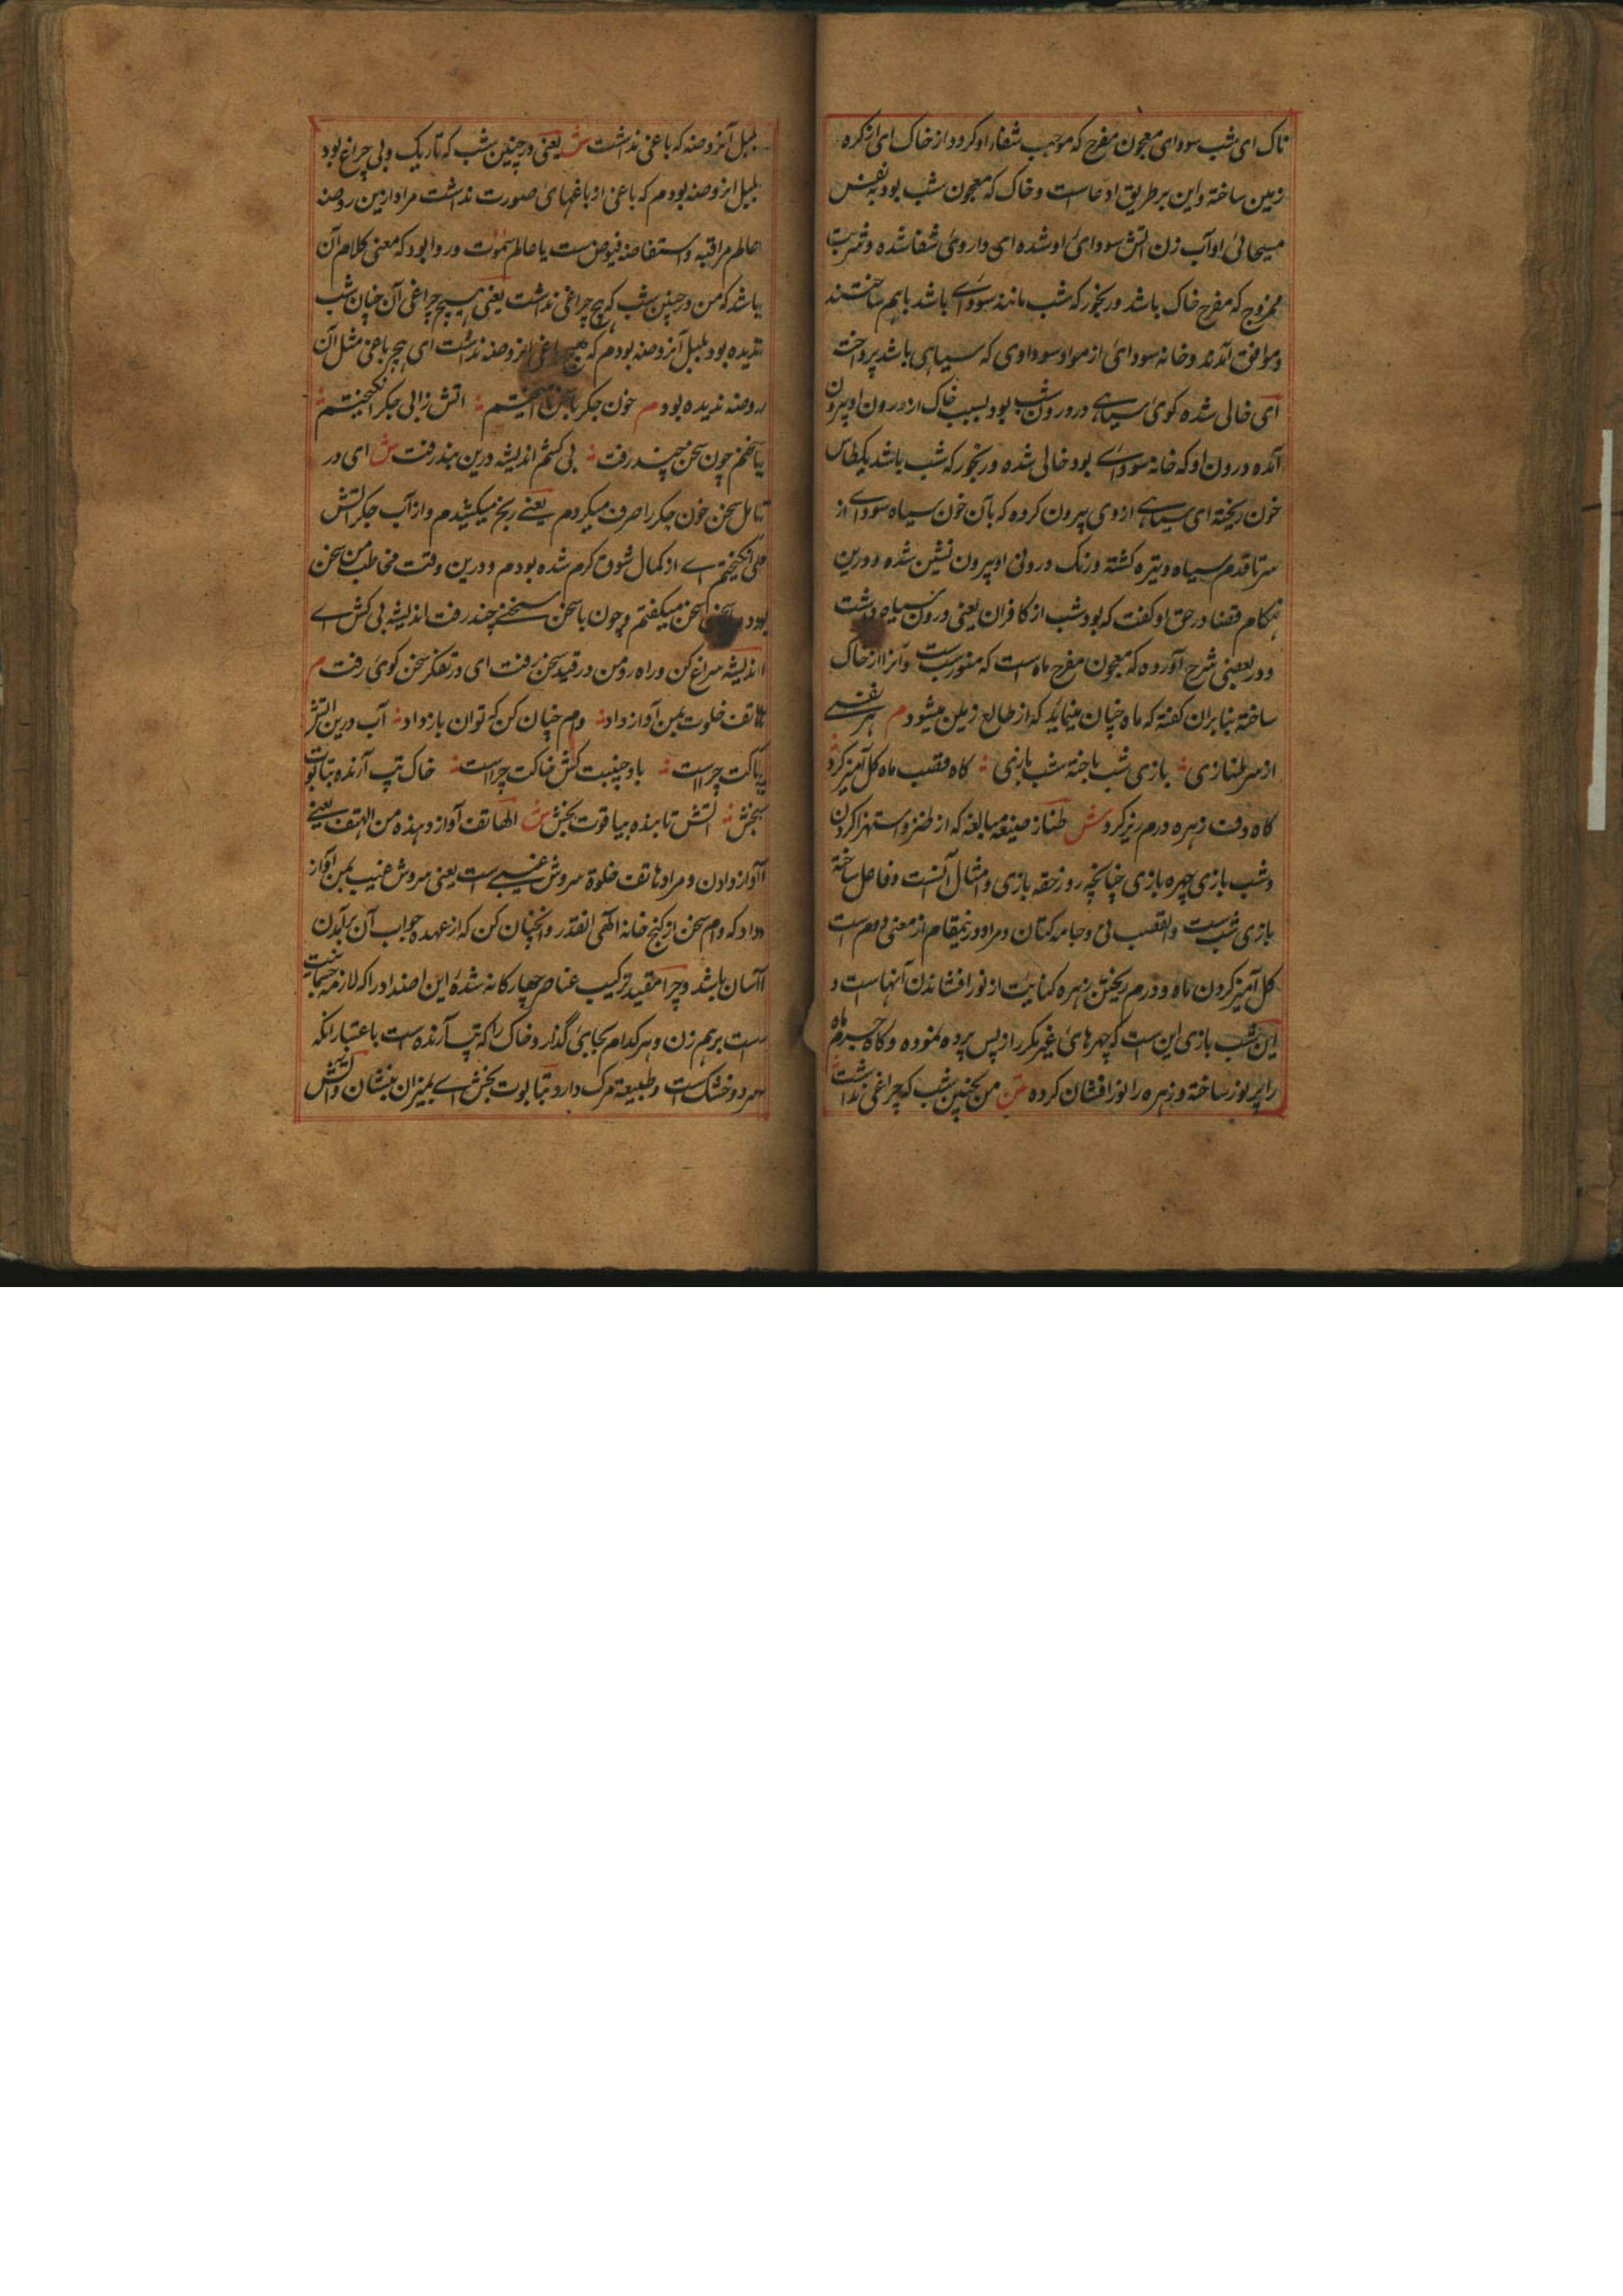 ناک ای شب سودای معجون مفرح که موجب شفاء او کرود از خاک ای از کره
زمین ساخته و این بر طریق ادعاست و خاک که معجون شب بود به نفس
مسیحائی او آب زن آتش سودای او شده ای داروی شفا شده و شربت
ممزوج که مفرح خاک باشد و رنجور که شب مانند سودای باشد باهم ساختند
و موافق آمدند و خانه سودای از مواد سوداوی که سیاهی باشد پرداخت
ای خالی شده کوی سیاهی درون شب بود بسبب خاک از درون او بیرون
آمده درون او که خانه سودای بود خالی شده و رنجور که شب باشد یکطاس
خون ریخته ای سیاهی از وی بیرون کرده که بآن خون سیاه سودای از
سر تا قدم سیاه و تیره کشته و زنک درونی او بیرون نشین شده و درین
هنکام قضا در حق او کفت که بود شب از کافران یعنی درون سیاه داشت
و در بعضی شرح آورده که معجون مفرح ماه است که منورست و آنرا از خاک
ساخته بنا بران کفته که ماه چنان مینماید که از طالع زمین میشود م هر نفسی
از سر طنازی بازی شب باخته شب بازی کاه قصب ماه کل آمیز کرد
کاه دف زهره درم ریز کرد ش طناز صیغه مبالغه که از طنز و استهزا کردن
و شب بازی چهره بازی چنانچه روز حقه بازی و امثال آنست و فاعل ساخته
بازی شب است والقصب نی و جامه کتان و مراد درینمقام از معنی دوم است
کل آمیز کردن ماه و درم ریختن زهره کنایت از نور افشاندن آنهاست و
این شب بازی این ست که چهرهای غیر مکرر از پس پرده نموده و کاه جرم ماه
را پر نور ساخته و زهره را نور افشان کرده متن من بچنین شب که چراغی نداشت
بلبل آنروضه که باغی نداشت ش یعنی در چنین شب که تاریک و بی چراغ بود
بلبل آنروضه بودم که باغی از باغهای صورت نداشت مراد ازین روضه
عالم مراقبه و استفاضه فیوض ست یا عالم سموت و روا بود که معنی کلام آن
باشد که من در چنین شب که هیچ چراغی نداشت یعنی هیچ چراغی آن چنان شب
ندیده بود بلبل آنروضه بودم که هیچ باغی آنروضه نداشت ای هیچ باغی مثل آن
روضه ندیده بود م خون جکر با سخن آمیختم آتش از آب جکر انکیختم
با سخنم چون سخنی چند رفت بی کشم اندیشه درین پند رفت ش ای در
تامل سخن خون جکر را صرف میکردم یعنی رنج میکشیدم و از آب جکر آتش
می انکیختم ای از کمال شوق کرم شده بودم و درین وقت مخاطب من سخن
بود سخن میکفتم و چون با سخن سخنی چند رفت اندیشه بی کش ای
اندیشه سراغ کن و راه رو من در قید سخن رفت ای در تفکر سخن کوی رفت م
هاتف خلوت بمن آواز داد وام چنان کن که توان باز داد آب درین آتش
پاکت چراست باد جنیبت کش خاکت چراست خاک تپ آرنده بتابوت
بخش آتش تابنده بیاقوت بخش ش الهاتف آواز دهنده من الهتف یعنی
آواز دادن و مراد هاتف خلوة سروش غیبی ست یعنی سروش غیب بمن آواز
داد که وام سخن از کنج خانه الهی انقدر و انچنان کن که از عهده جواب آن برآمدن
آسان باشد و چرا مقید ترکیب عناصر چهار کانه شده این اضداد را که لازمه
ست بر هم زن و هر کدام بجای گذار و خاک را که تپ آرنده ست باعتبار آنکه
سرد و خشک ست و طبیعة مرک دارد بتابوت بخش ای بمیزان بنشان و آتش